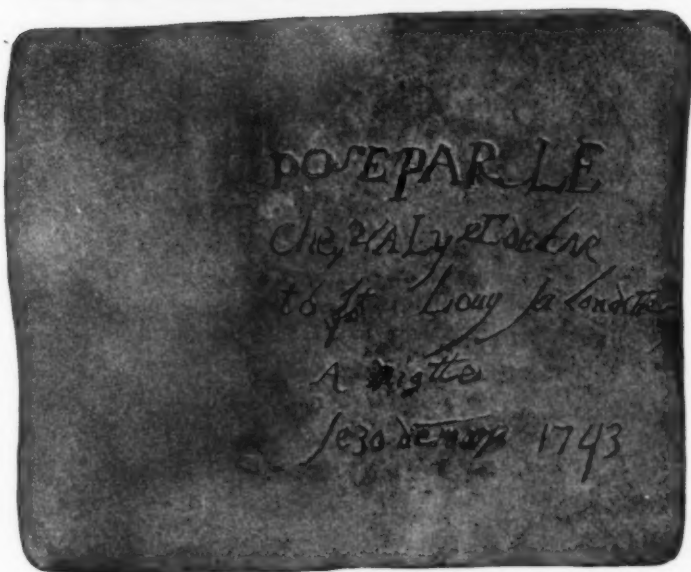 poſE PAR LE
che,vALyet de Lave
to St Louy la Londette
A miotte
le 30 de mars 1743